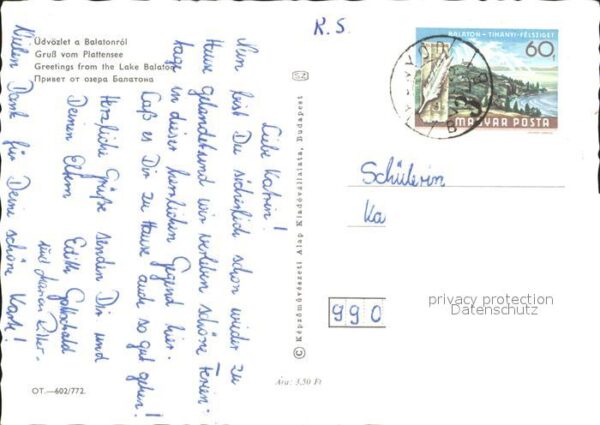 Üdvözlet a Balatonról
Gruß vom Plattensee
Greetings from the Lake Balaton
Привет от озера Балатона
R. S.
BALATON - TIHANYI-FÉLSZIGET
60f
MAGYAR POSTA
Liebe Katrin!
Nun bist Du sicherlich schon wieder zu
Hause gelandet und wir verleben schöne Ferien-
tage in dieser herrlichen Gegend hier.
Laß es Dir zu Hause auch so gut gehen!
Herzliche Grüße senden Dir und
Deinen Eltern Edith Gottschald
und
Vielen Dank für Deine schöne Karte!
SZ
© Képzőművészeti Alap Kiadóvállalata, Budapest
Schülerin
Ka
990
privacy protection
Datenschutz
Ára: 3,50 Ft
OT.—602/772.